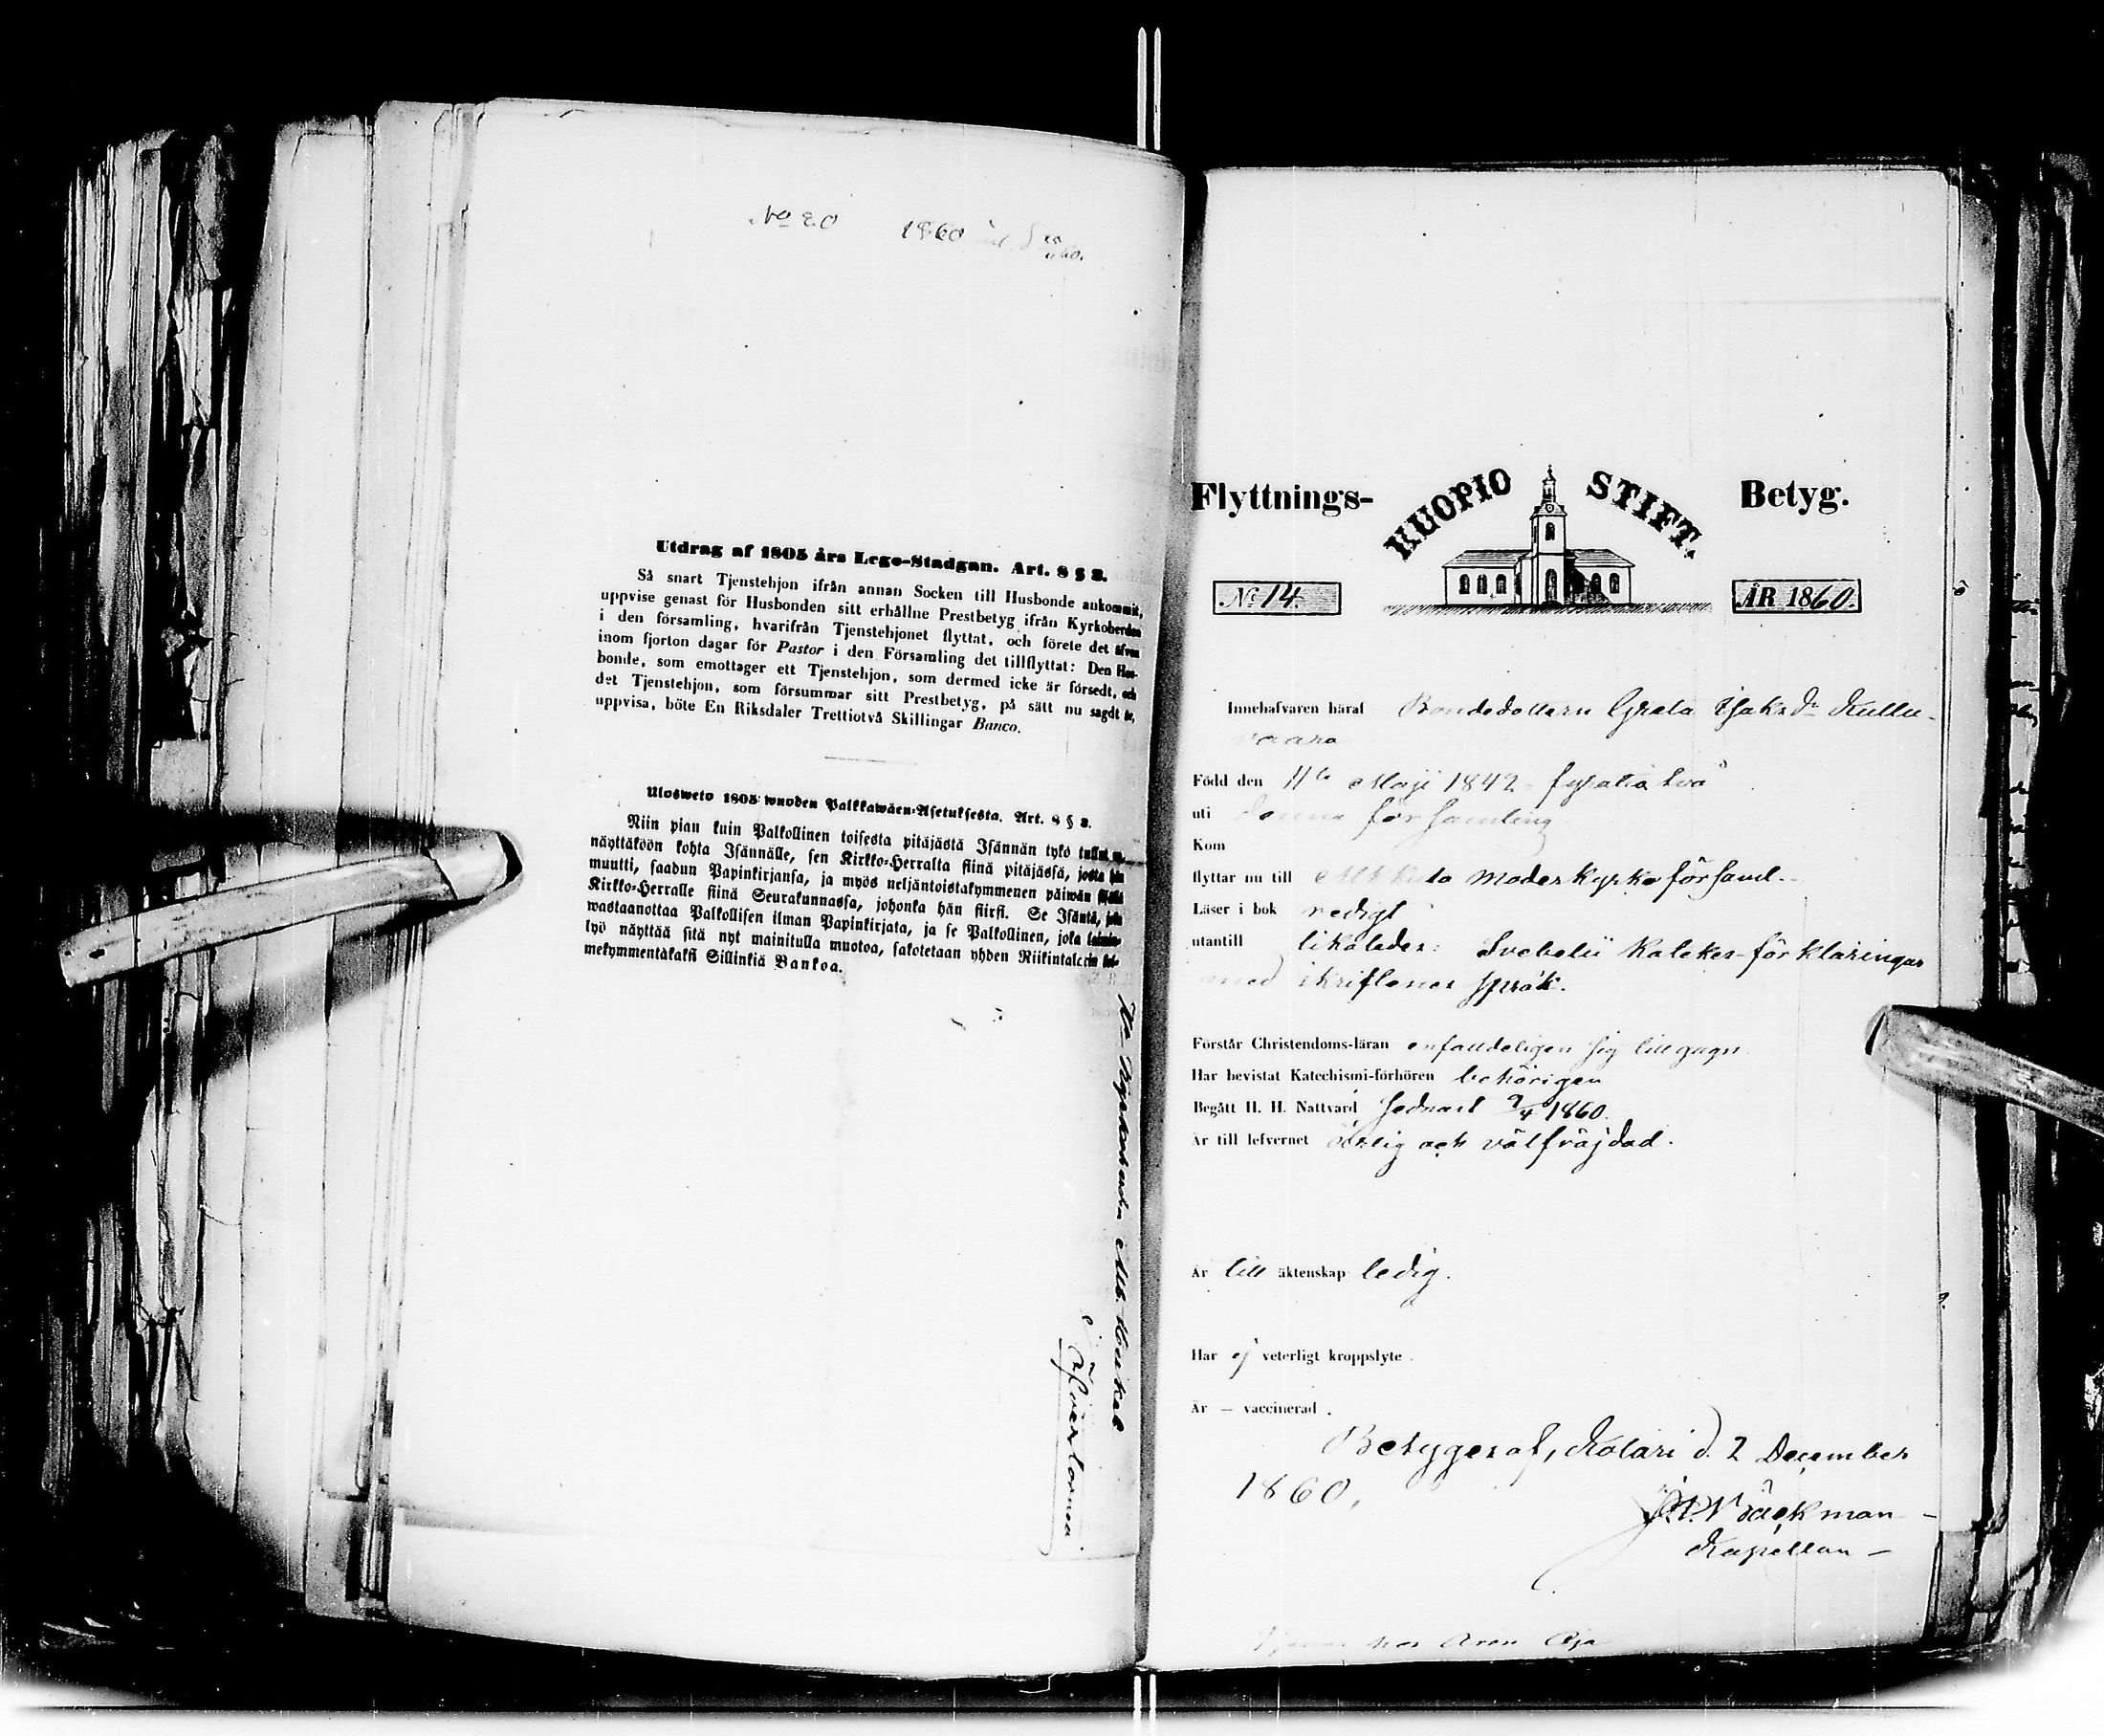 No 20 1860
Utdrag af 1805 års Lego-Stadgan. Art. 8 § 3.
Så snart Tjenstehjon ifrån annan Socken till Husbonde ankommit,
uppvise genast för Husbonden sitt erhållne Prestbetyg ifrån Kyrkoherden
i den församling, hvarifrån Tjenstehjonet flyttat, och förete det äfven
inom fjorton dagar för Pastor i den Församling det tillflyttat: Den Hus-
bonde, som emottager ett Tjenstehjon, som dermed icke är försedt, och
det Tjenstehjon, som försummar sitt Prestbetyg, på sätt nu sagdt är,
uppvisa, böte En Riksdaler Trettiotvå Skillingar Banco.
Ulosweto 1805 wuoden Palkkawäen-Asetuksesta. Art. 8 § 3.
Niin pian kuin Palkollinen toisesta pitäjästä Isännän tykö tullut
näyttäköön kohta Isännälle, sen Kirkko-Herralta siinä pitäjässä, josta hän
muutti, saadun Papinkirjansa, ja myös neljäntoistakymmenen päiwän sisällä
Kirkko-Herralle siinä Seurakunnassa, johonka hän siirsi. Se Isäntä, joka
wastaanottaa Palkollisen ilman Papinkirjata, ja se Palkollinen, joka laimin-
lyö näyttää sitä nyt mainitulla muotoa, sakotetaan yhden Riikintalerin kol-
mekymmentäkaksi Sillinkiä Bankoa.
i Öfvertorneå.
Flyttnings- KUOPIO STIFT. Betyg.
No 14. ÅR 1860.
Innehafvaren häraf Bondedottern Greta Isaks Dr Kullu-
vaara
Född den 11te Maji 1842 - fyratio två
uti denna församling
Kom
flyttar nu till moderkyrkoförsaml.
Läser i bok redigt
utantill likaledes: Svebelii Kateket-förklaringar
med skriftenes språk.
Förstår Christendoms-läran enfaldeligen sig till gagn
Har bevistat Katechismi-förhören behörigen
Begått H. H. Nattvard sednast 9/4 1860.
Är till lefvernet ärlig och välfräjdad.
Är till äktenskap ledig.
Har ej veterligt kroppslyte.
Är – vaccinerad.
Betygar af, Kolari d. 2 December
1860,
Bäckman
Kapellan